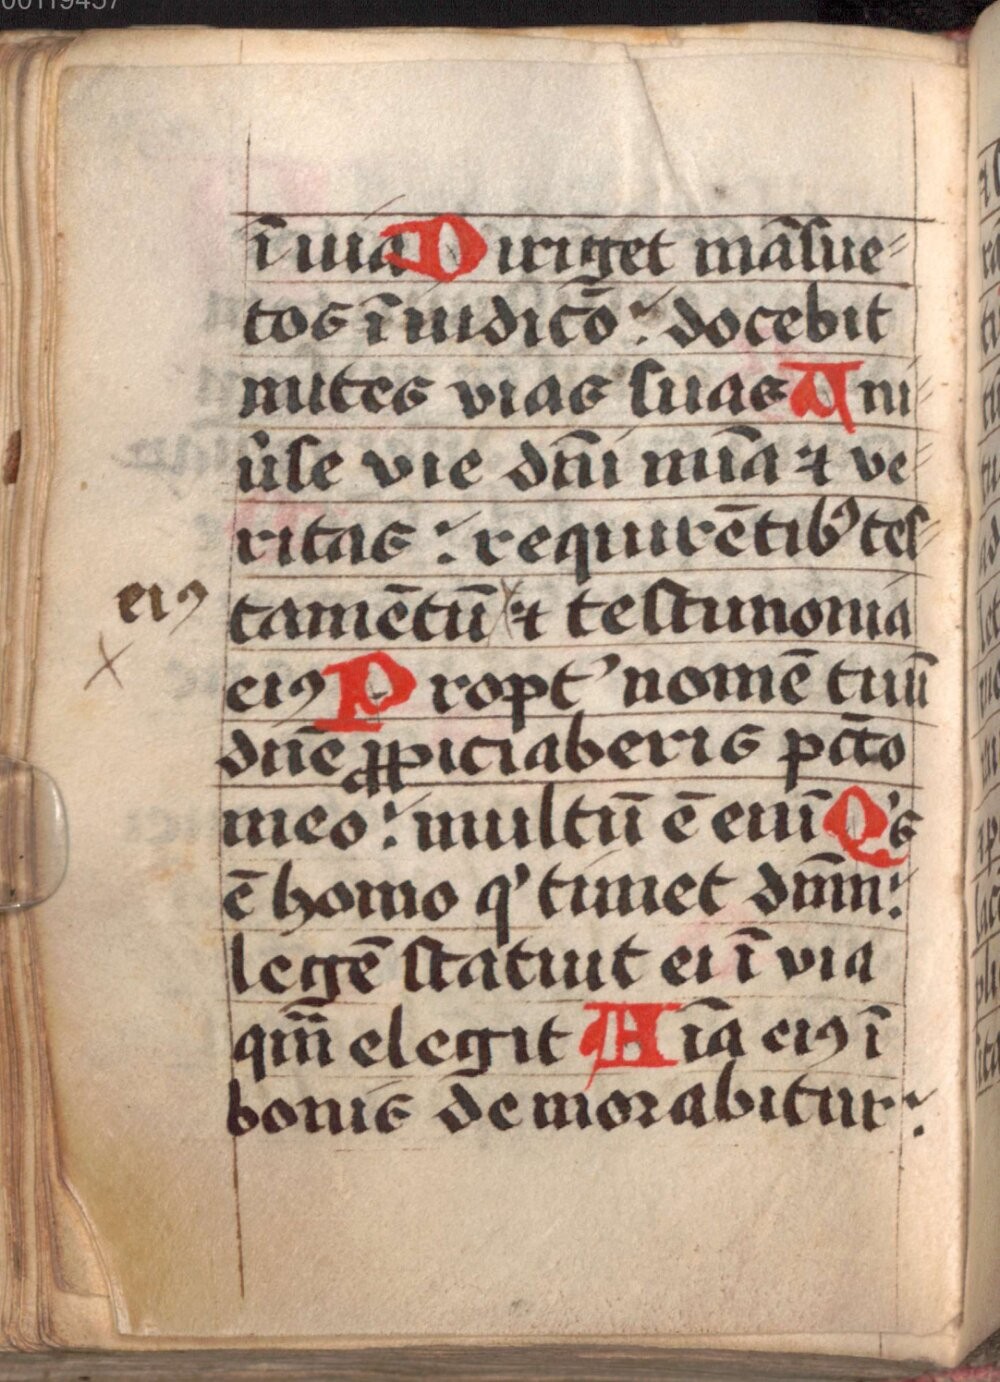 00119457
ī uia Diriget mãsue⸗
tos ī iudicō : docebit
mites vias suas Vni⸗
ũse vie dñi mĩa ⁊ ve⸗
ritas : requirẽtibꝰ tes⸗
eiꝰ tamẽtū ⁊ testimonia
eiꝰ Propt' nomẽ tuū
dñe ꝓpiciaberis pctõ
meo : multū ẽ enī Q's
ẽ homo q' timet dñm :
legẽ statuit ei ī via
qm̃ elegit Aĩa eiꝰ ī
bonis demorabitur :